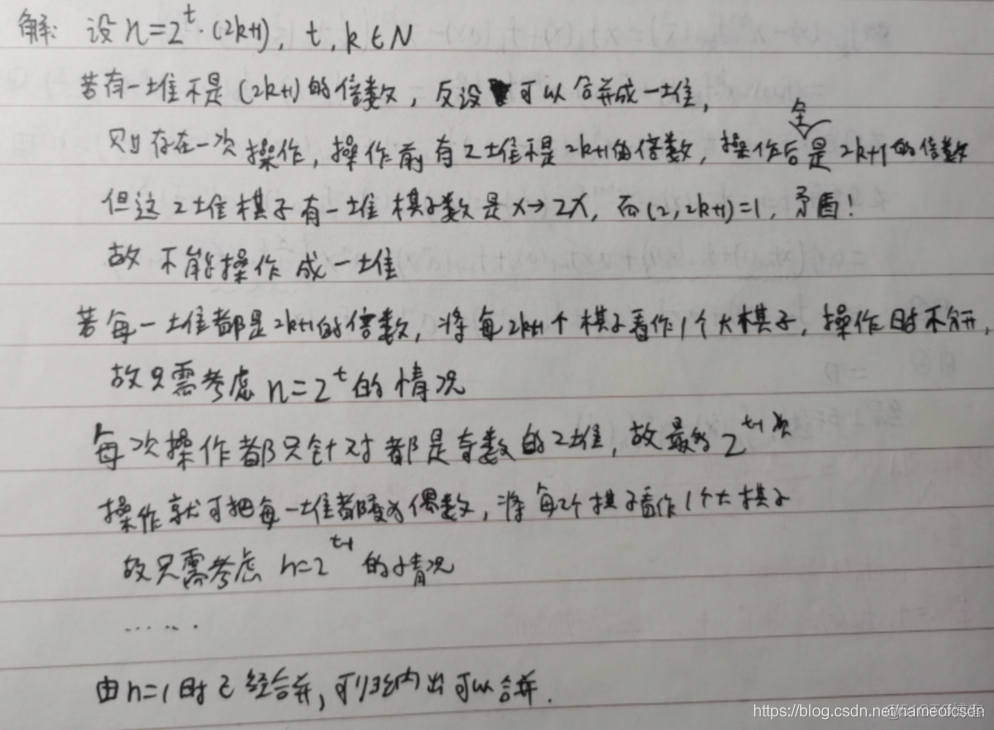 解: 设 n=2^t·(2k+1), t,k∈N
若有一堆不是(2k+1)的倍数, 反设可以合并成一堆,
则存在一次操作, 操作前有2堆不是2k+1的倍数, 操作后全是2k+1的倍数
但这2堆棋子有一堆棋子数是x→2x, 而(2,2k+1)=1, 矛盾!
故不能操作成一堆
若每一堆都是2k+1的倍数, 将每2k+1个棋子看作1个大棋子, 操作时不分开,
故只需考虑 n=2^t 的情况
每次操作都只针对都是奇数的2堆, 故最多2^(t-1)次
操作就可把每一堆都变为偶数, 将每2个棋子看作1个大棋子
故只需考虑 n=2^(t-1) 的情况
......
由n=1时已经合并, 可归纳出可以合并.
https://blog.csdn.net/nameofcsdn